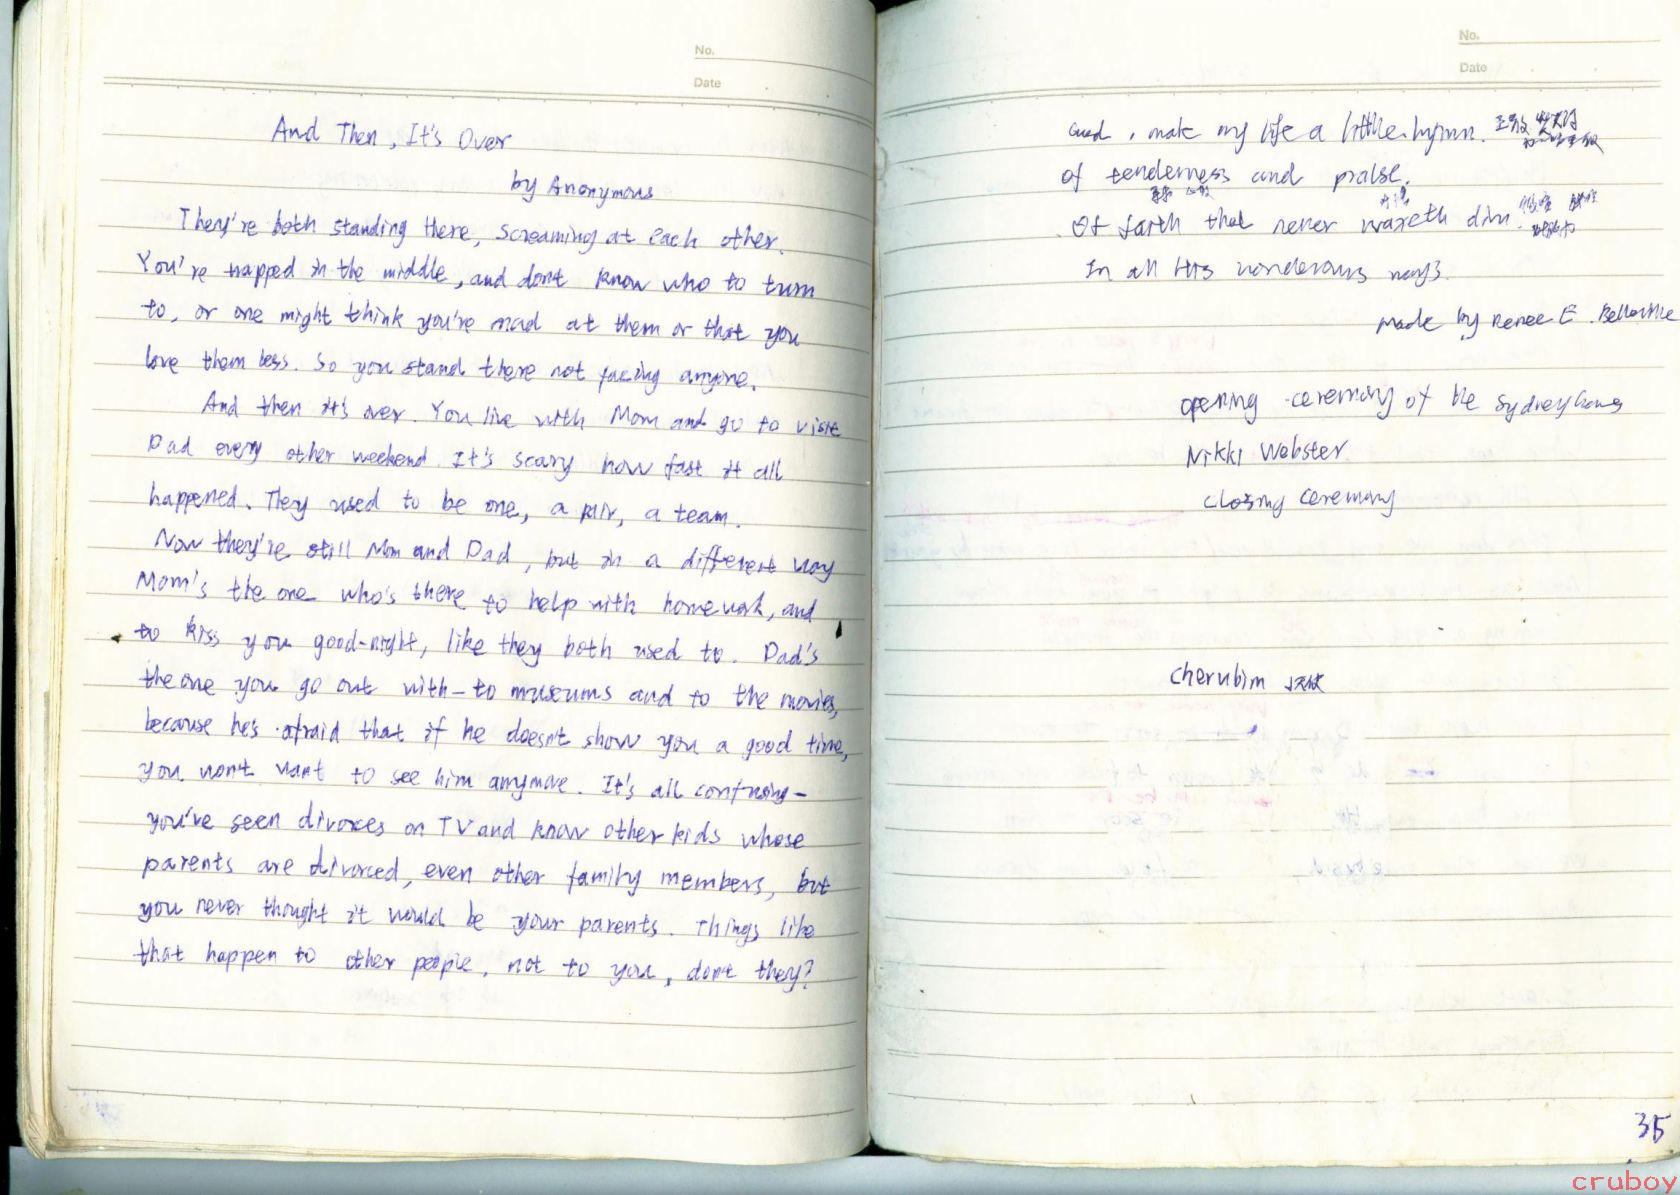 No.
Date
And Then, It's Over
by Anonymous
They're both standing there, screaming at each other.
You're trapped in the middle, and don't know who to turn
to, or one might think you're mad at them or that you
love them less. So you stand there not facing anyone.
And then it's over. You live with Mom and go to visit
Dad every other weekend. It's scary how fast it all
happened. They used to be one, a pair, a team.
Now they're still Mom and Dad, but in a different way
Mom's the one who's there to help with homework, and
to kiss you good-night, like they both used to. Dad's
the one you go out with – to museums and to the movies,
because he's afraid that if he doesn't show you a good time,
you won't want to see him anymore. It's all confusing –
you've seen divorces on TV and know other kids whose
parents are divorced, even other family members, but
you never thought it would be your parents. Things like
that happen to other people, not to you, don't they?
No.
Date
make my life a little hymn.
of tenderness and praise.
Of faith that never waxeth dim.
In all His wonderous ways.
made by Renee E.
opening ceremony of the Sydney
Nikki Webster.
closing ceremony
Cherubim 小天使
35
cruboy